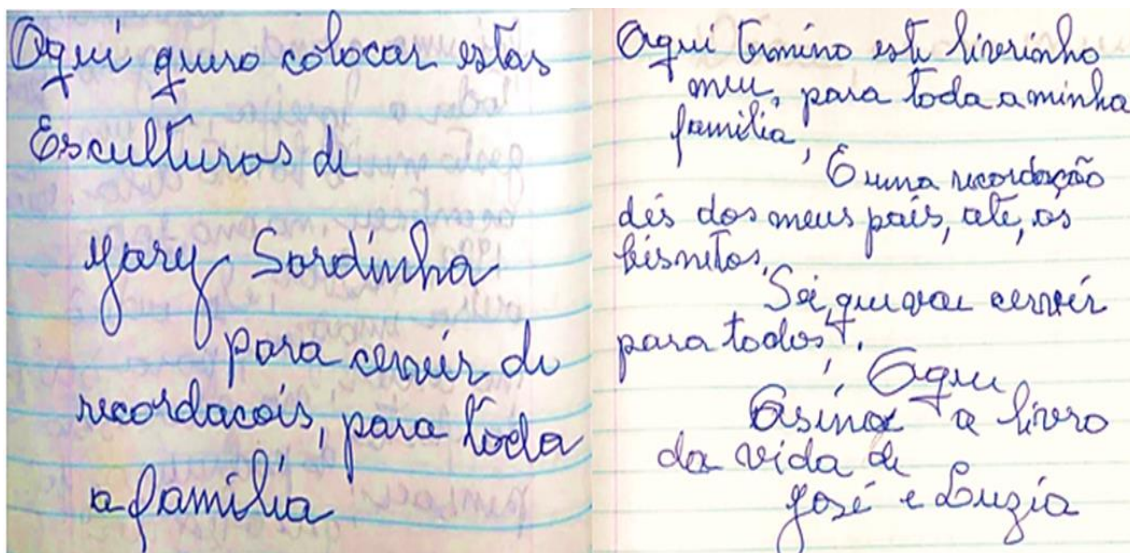 Aqui quero colocar estas
Esculturas de
Yary Sardinha
para cervir de
recordacois, para toda
a família
Aqui termino este liverinho
meu, para toda a minha
família,
E uma recordação
dés dos meus pais, ate, os
bisnetos,
Sei, que vai cervir
para todos!.
Aqui
Asina a livro
da vida de
José e Luzia